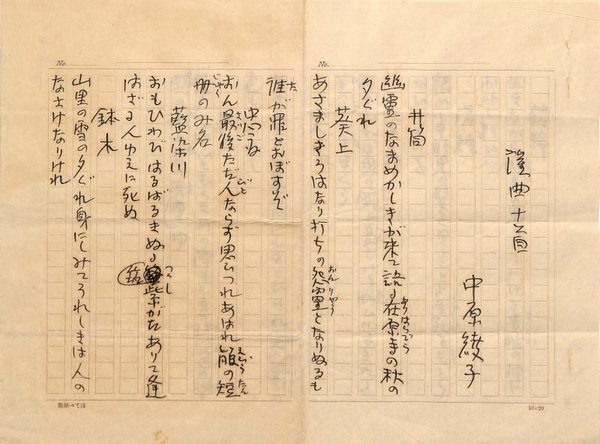 No.
謡曲十首
中原綾子
井筒
幽霊のなまめかしきが来て語る在原寺の秋の
夕ぐれ
葵上
あさましきうはなり打ちの怨霊となりぬるも
No.
誰が罪とおぼすぞ
忠度
おん最後ただ人ならず思ひつれあはれ箙の短
冊のみ名
藍染川
おもひわびはるばるきぬる紫がたありて逢
はざる人ゆゑに死ぬ
鉢木
山里の雪の夕ぐれ身にしみてうれしきは人の
なさけなりけれ
10×20